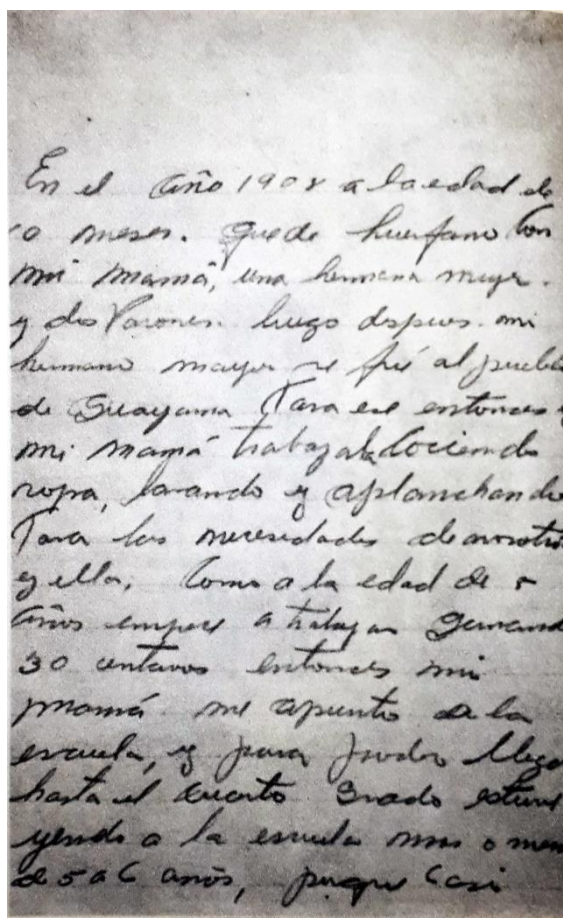 En el año 1908 a la edad de
10 meses. quede huerfano con
mi mamá, una hermana mujer.
y dos Varones. luego despues. mi
hermano mayor se fué al pueblo
de Guayama Para ese entonces
mi mamá trabajaba Cociendo
ropa, lavando y aplanchando
Para las necesidades de nosotro
y ella. Como a la edad de
años empece a trabajar Ganando
30 centavos entonces mi
mamá me apunto a la
escuela, y para poder llega
hasta el cuarto Grado estuve
yendo a la escuela mas o men
de 5 a 6 años, porque Casi